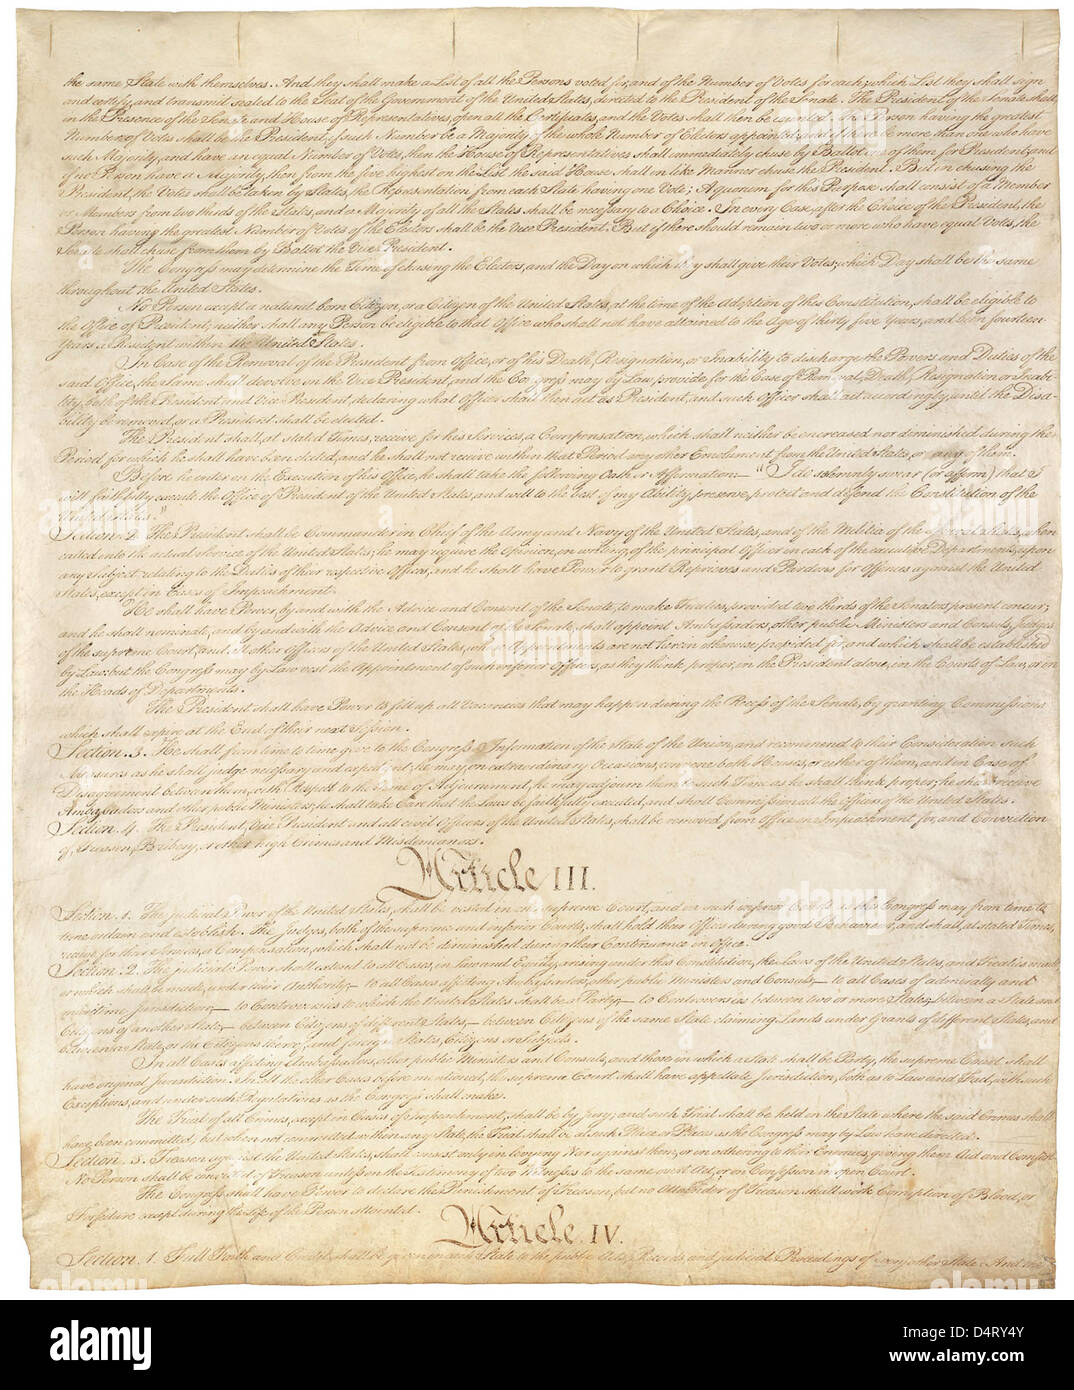 the same State with themselves. And they shall make a List of all the Persons voted for, and of the Number of Votes for each; which List they shall sign
and certify, and transmit sealed to the Seat of the Government of the United States, directed to the President of the Senate. The President of the Senate shall,
in the Presence of the Senate and House of Representatives, open all the Certificates, and the Votes shall then be counted. The Person having the greatest
Number of Votes shall be the President, if such Number be a Majority of the whole Number of Electors appointed; and if there be more than one who have
such Majority, and have an equal Number of Votes, then the House of Representatives shall immediately chuse by Ballot one of them for President; and
if no Person have a Majority, then from the five highest on the List the said House shall in like Manner chuse the President. But in chusing the
President, the Votes shall be taken by States, the Representation from each State having one Vote; A quorum for this Purpose shall consist of a Member
or Members from two thirds of the States, and a Majority of all the States shall be necessary to a Choice. In every Case, after the Choice of the President, the
Person having the greatest Number of Votes of the Electors shall be the Vice President. But if there should remain two or more who have equal Votes, the
Senate shall chuse from them by Ballot the Vice President.
The Congress may determine the Time of chusing the Electors, and the Day on which they shall give their Votes; which Day shall be the same
throughout the United States.
No Person except a natural born Citizen, or a Citizen of the United States, at the time of the Adoption of this Constitution, shall be eligible to
the Office of President; neither shall any Person be eligible to that Office who shall not have attained to the Age of thirty five Years, and been fourteen
Years a Resident within the United States.
In Case of the Removal of the President from Office, or of his Death, Resignation, or Inability to discharge the Powers and Duties of the
said Office, the Same shall devolve on the Vice President, and the Congress may by Law provide for the Case of Removal, Death, Resignation or Inabi-
lity, both of the President and Vice President, declaring what Officer shall then act as President, and such Officer shall act accordingly, until the Disa-
bility be removed, or a President shall be elected.
The President shall, at stated Times, receive for his Services, a Compensation, which shall neither be encreased nor diminished during the
Period for which he shall have been elected, and he shall not receive within that Period any other Emolument from the United States, or any of them.
Before he enter on the Execution of his Office, he shall take the following Oath or Affirmation:— "I do solemnly swear (or affirm) that I
will faithfully execute the Office of President of the United States, and will to the best of my Ability, preserve, protect and defend the Constitution of the
United States."
Section. 2. The President shall be Commander in Chief of the Army and Navy of the United States, and of the Militia of the several States, when
called into the actual Service of the United States; he may require the Opinion, in writing, of the principal Officer in each of the executive Departments, upon
any Subject relating to the Duties of their respective Offices, and he shall have Power to grant Reprieves and Pardons for Offences against the United
States, except in Cases of Impeachment.
He shall have Power, by and with the Advice and Consent of the Senate, to make Treaties, provided two thirds of the Senators present concur;
and he shall nominate, and by and with the Advice and Consent of the Senate, shall appoint Ambassadors, other public Ministers and Consuls, Judges
of the supreme Court, and all other Officers of the United States, whose Appointments are not herein otherwise provided for, and which shall be established
by Law: but the Congress may by Law vest the Appointment of such inferior Officers, as they think proper, in the President alone, in the Courts of Law, or in
the Heads of Departments.
The President shall have Power to fill up all Vacancies that may happen during the Recess of the Senate, by granting Commissions
which shall expire at the End of their next Session.
Section. 3. He shall from time to time give to the Congress Information of the State of the Union, and recommend to their Consideration such
Measures as he shall judge necessary and expedient; he may, on extraordinary Occasions, convene both Houses, or either of them, and in Case of
Disagreement between them, with Respect to the Time of Adjournment, he may adjourn them to such Time as he shall think proper; he shall receive
Ambassadors and other public Ministers; he shall take Care that the Laws be faithfully executed, and shall Commission all the Officers of the United States.
Section. 4. The President, Vice President and all civil Officers of the United States, shall be removed from Office on Impeachment for, and Conviction
of, Treason, Bribery, or other high Crimes and Misdemeanors.
Article III.
Section. 1. The judicial Power of the United States, shall be vested in one supreme Court, and in such inferior Courts as the Congress may from time to
time ordain and establish. The Judges, both of the supreme and inferior Courts, shall hold their Offices during good Behaviour, and shall, at stated Times,
receive for their Services, a Compensation, which shall not be diminished during their Continuance in Office.
Section. 2. The judicial Power shall extend to all Cases, in Law and Equity, arising under this Constitution, the Laws of the United States, and Treaties made,
or which shall be made, under their Authority;— to all Cases affecting Ambassadors, other public Ministers and Consuls;— to all Cases of admiralty and
maritime Jurisdiction;— to Controversies to which the United States shall be a Party;— to Controversies between two or more States;— between a State and
Citizens of another State;— between Citizens of different States,— between Citizens of the same State claiming Lands under Grants of different States, and
between a State, or the Citizens thereof, and foreign States, Citizens or Subjects.
In all Cases affecting Ambassadors, other public Ministers and Consuls, and those in which a State shall be Party, the supreme Court shall
have original Jurisdiction. In all the other Cases before mentioned, the supreme Court shall have appellate Jurisdiction, both as to Law and Fact, with such
Exceptions, and under such Regulations as the Congress shall make.
The Trial of all Crimes, except in Cases of Impeachment, shall be by Jury; and such Trial shall be held in the State where the said Crimes shall
have been committed; but when not committed within any State, the Trial shall be at such Place or Places as the Congress may by Law have directed.
Section. 3. Treason against the United States, shall consist only in levying War against them, or in adhering to their Enemies, giving them Aid and Comfort.
No Person shall be convicted of Treason unless on the Testimony of two Witnesses to the same overt Act, or on Confession in open Court.
The Congress shall have Power to declare the Punishment of Treason, but no Attainder of Treason shall work Corruption of Blood, or
Forfeiture except during the Life of the Person attainted.
Article. IV.
Section. 1. Full Faith and Credit shall be given in each State to the public Acts, Records, and judicial Proceedings of every other State. And the
alamy
Image ID: D4RY4Y
www.alamy.com